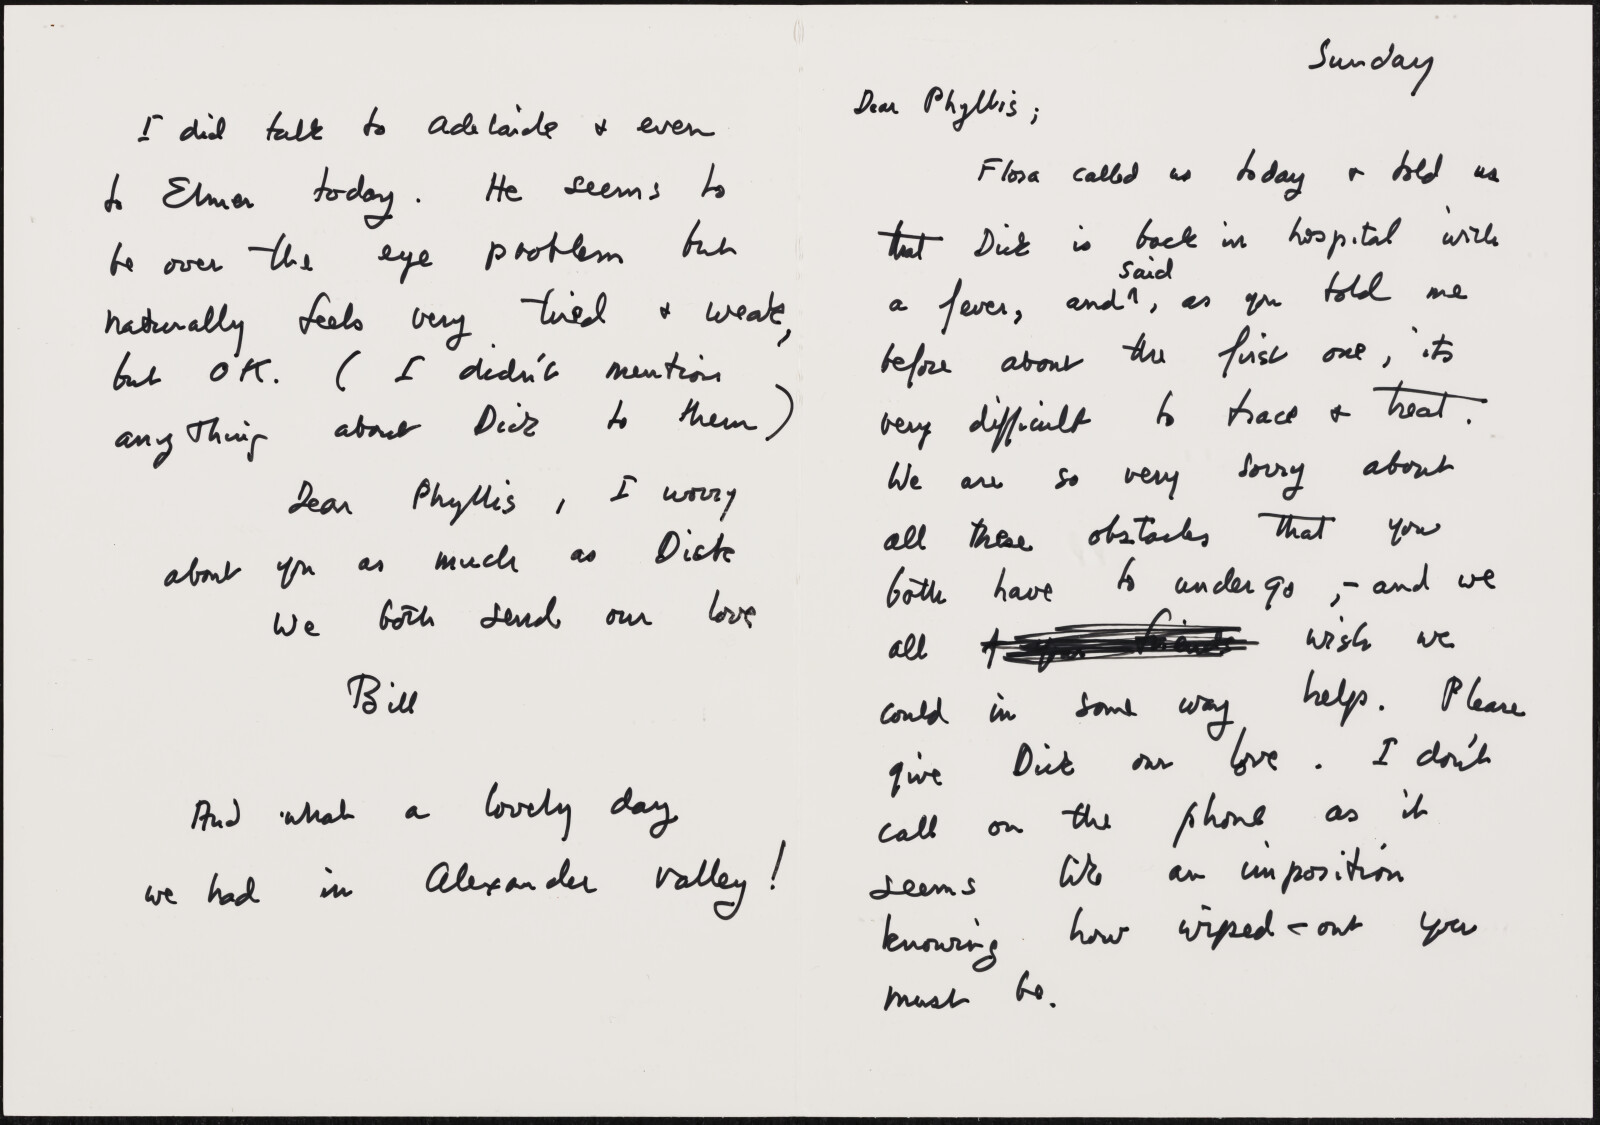 Sunday
Dear Phyllis;
Flora called us today & told us
that Dick is back in hospital with
said
a fever, and^, as you told me
before about the first one, its
very difficult to trace & treat.
We are so very sorry about
all these obstacles that you
both have to undergo,- and we
all wish we
could in some way help. Please
give Dick our love. I don't
call on the phone as it
seems like an imposition
knowing how wiped-out you
must be.
I did talk to Adelaide & even
to Elmer today. He seems to
be over the eye problem but
naturally feels very tired & weak,
but OK. ( I didn't mention
anything about Dick to them)
Dear Phyllis, I worry
about you as much as Dick
We both send our love
Bill
And what a lovely day
we had in Alexander Valley!